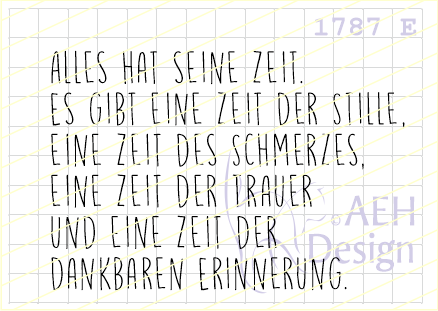 1787 E
ALLES HAT SEINE ZEIT.
ES GIBT EINE ZEIT DER STILLE,
EINE ZEIT DES SCHMERZES,
EINE ZEIT DER TRAUER
UND EINE ZEIT DER
DANKBAREN ERINNERUNG.
AEH
Design